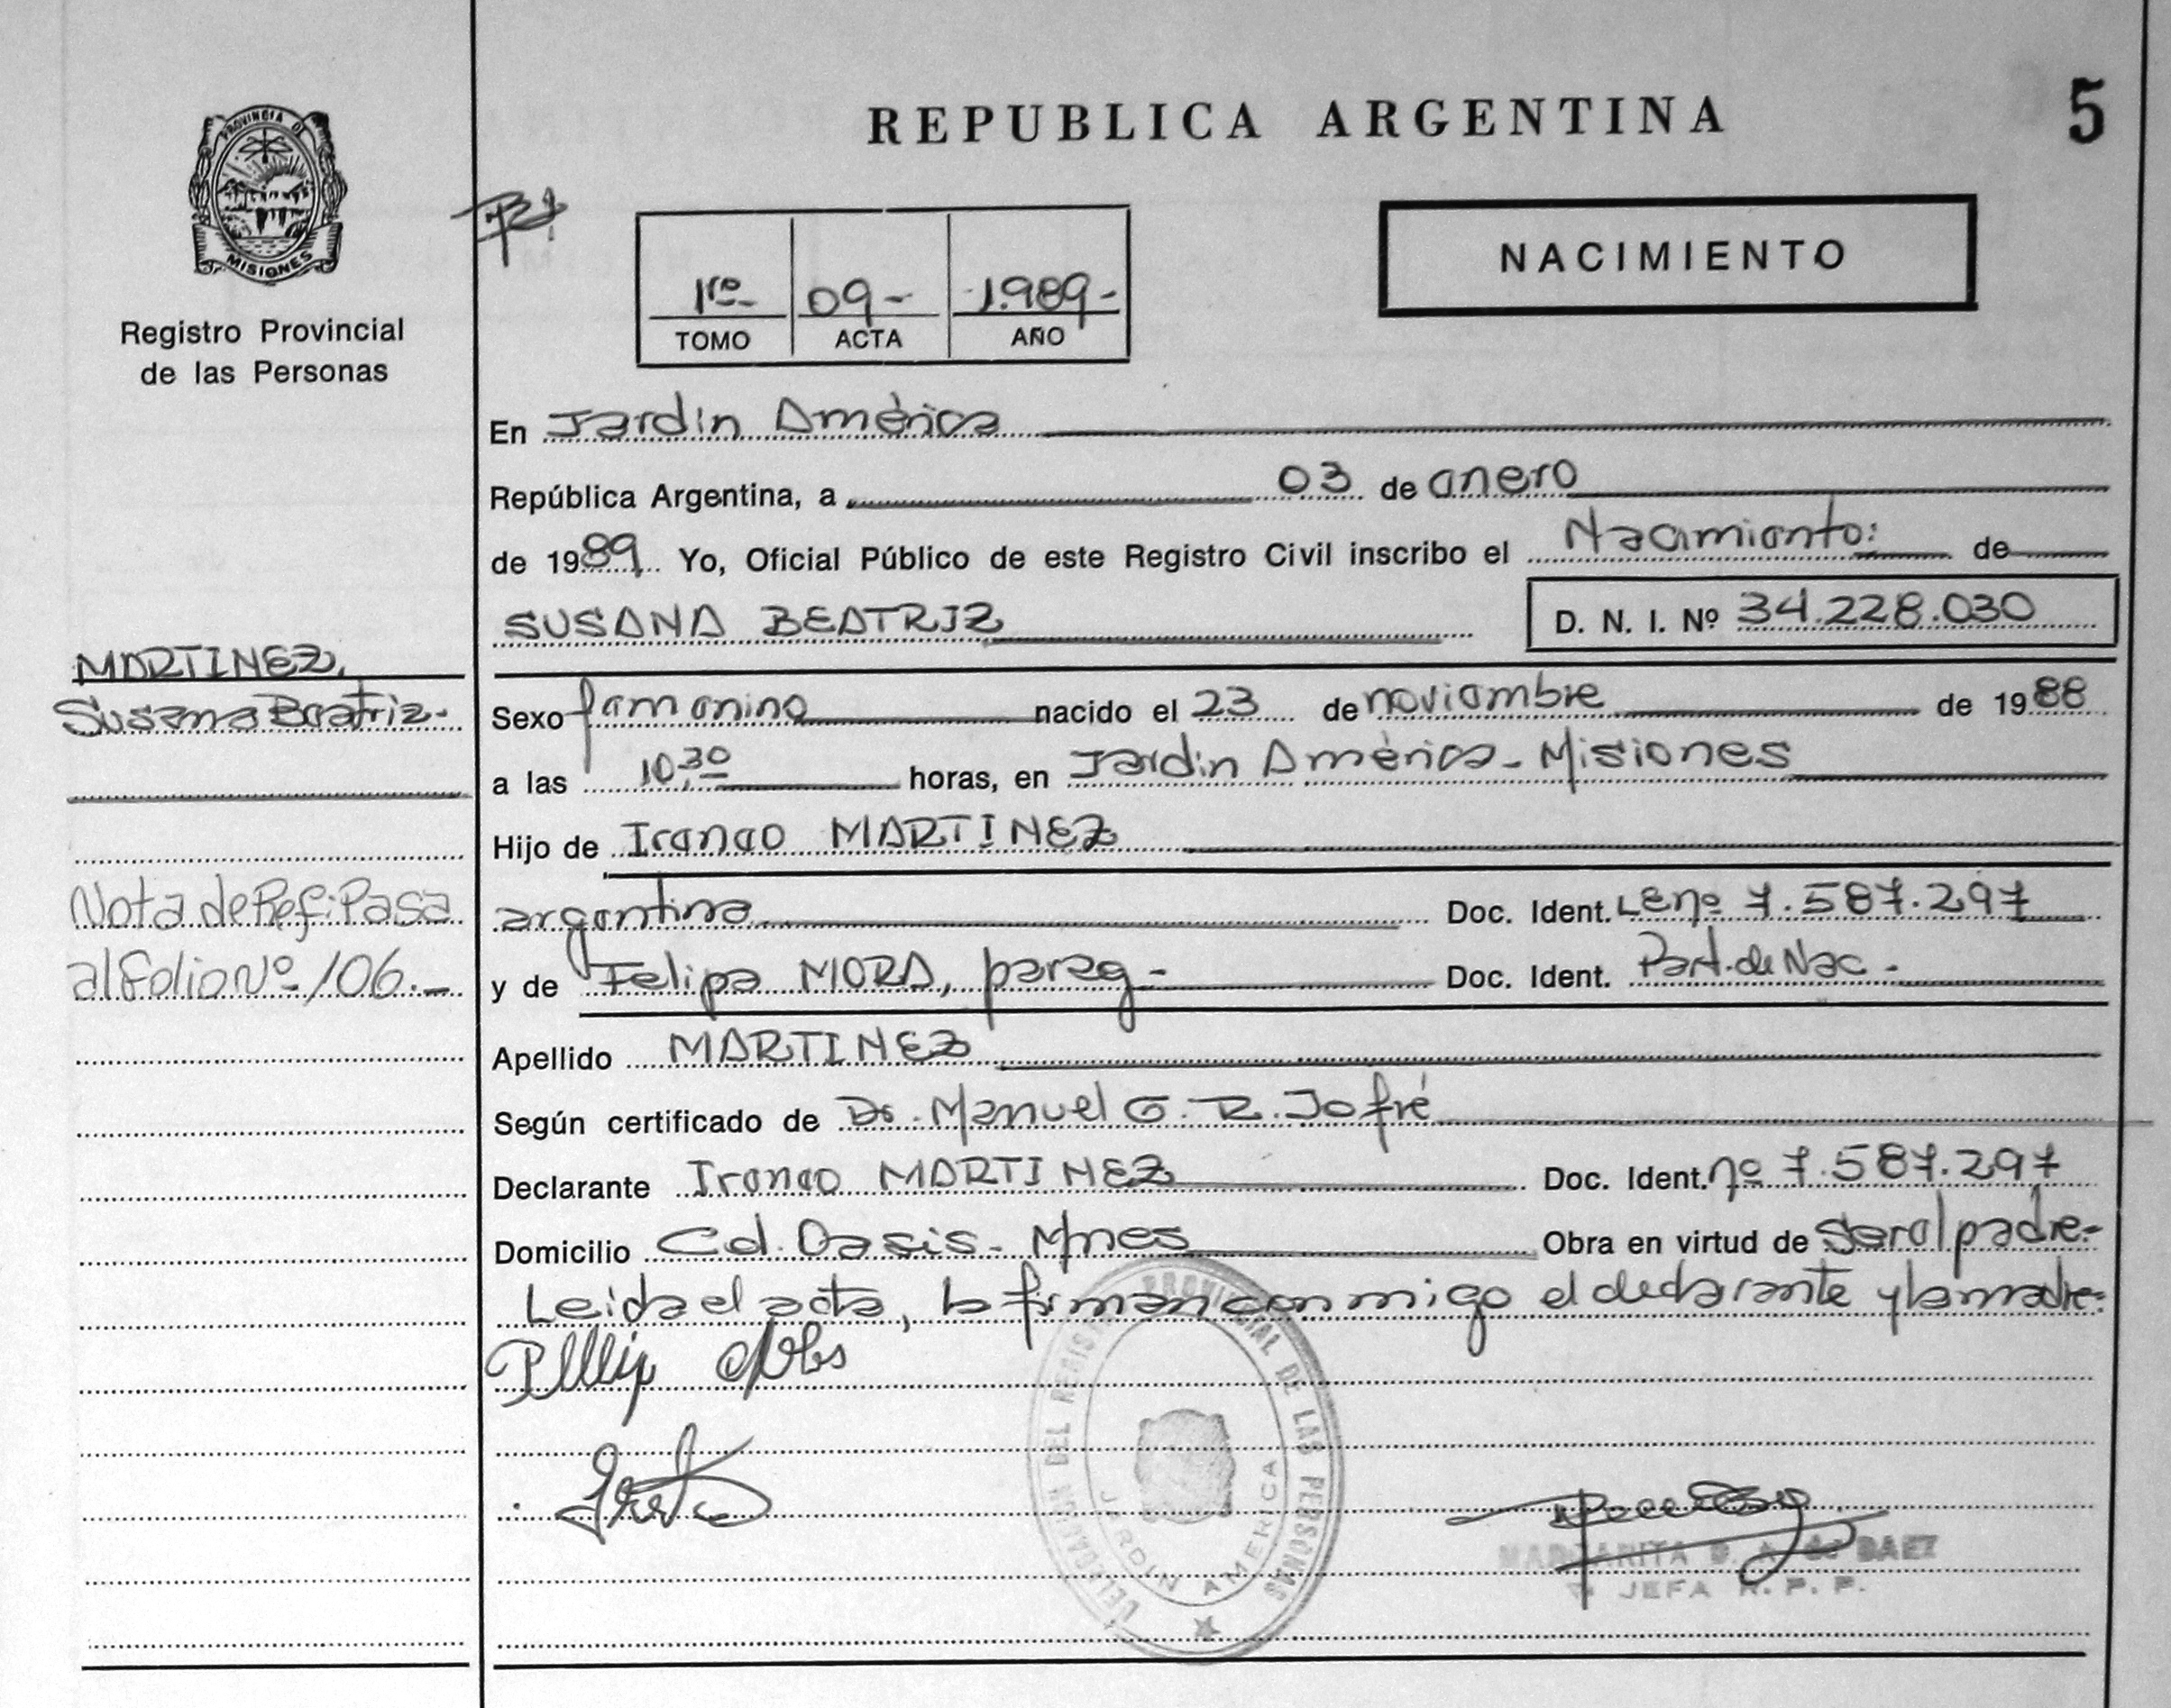 REPUBLICA ARGENTINA
5
PROVINCIA DE
MISIONES
Registro Provincial
de las Personas
1ro
09-
1.989-
TOMO
ACTA
AÑO
NACIMIENTO
En Jardín América
República Argentina, a 03 de enero
de 1989 Yo, Oficial Público de este Registro Civil inscribo el Nacimiento: de
SUSANA BEATRIZ
D. N. I. Nº 34.228.030
MARTINEZ,
Susana Beatriz-
Sexo femenino nacido el 23 de noviembre de 1988
a las 10,30 horas, en Jardín América - Misiones
Hijo de Ireneo MARTINEZ
argentina Doc. Ident. LE nº 7.587.297
y de Felipa MORA, parag - Doc. Ident. Part. de Nac -
Nota de Ref: Pasa
al folio Nº 106.-
Apellido MARTINEZ
Según certificado de Dr. Manuel G. R. Jofré
Declarante Ireneo MARTINEZ Doc. Ident. nº 7.587.297
Domicilio Cd. Oasis - Mnes Obra en virtud de ser el padre-
Leida el acta, la firman conmigo el declarante y la madre-
DEL REGISTRO PROVINCIAL DE LAS PERSONAS
JARDIN AMERICA
MARGARITA BAEZ
JEFA R. P. P.